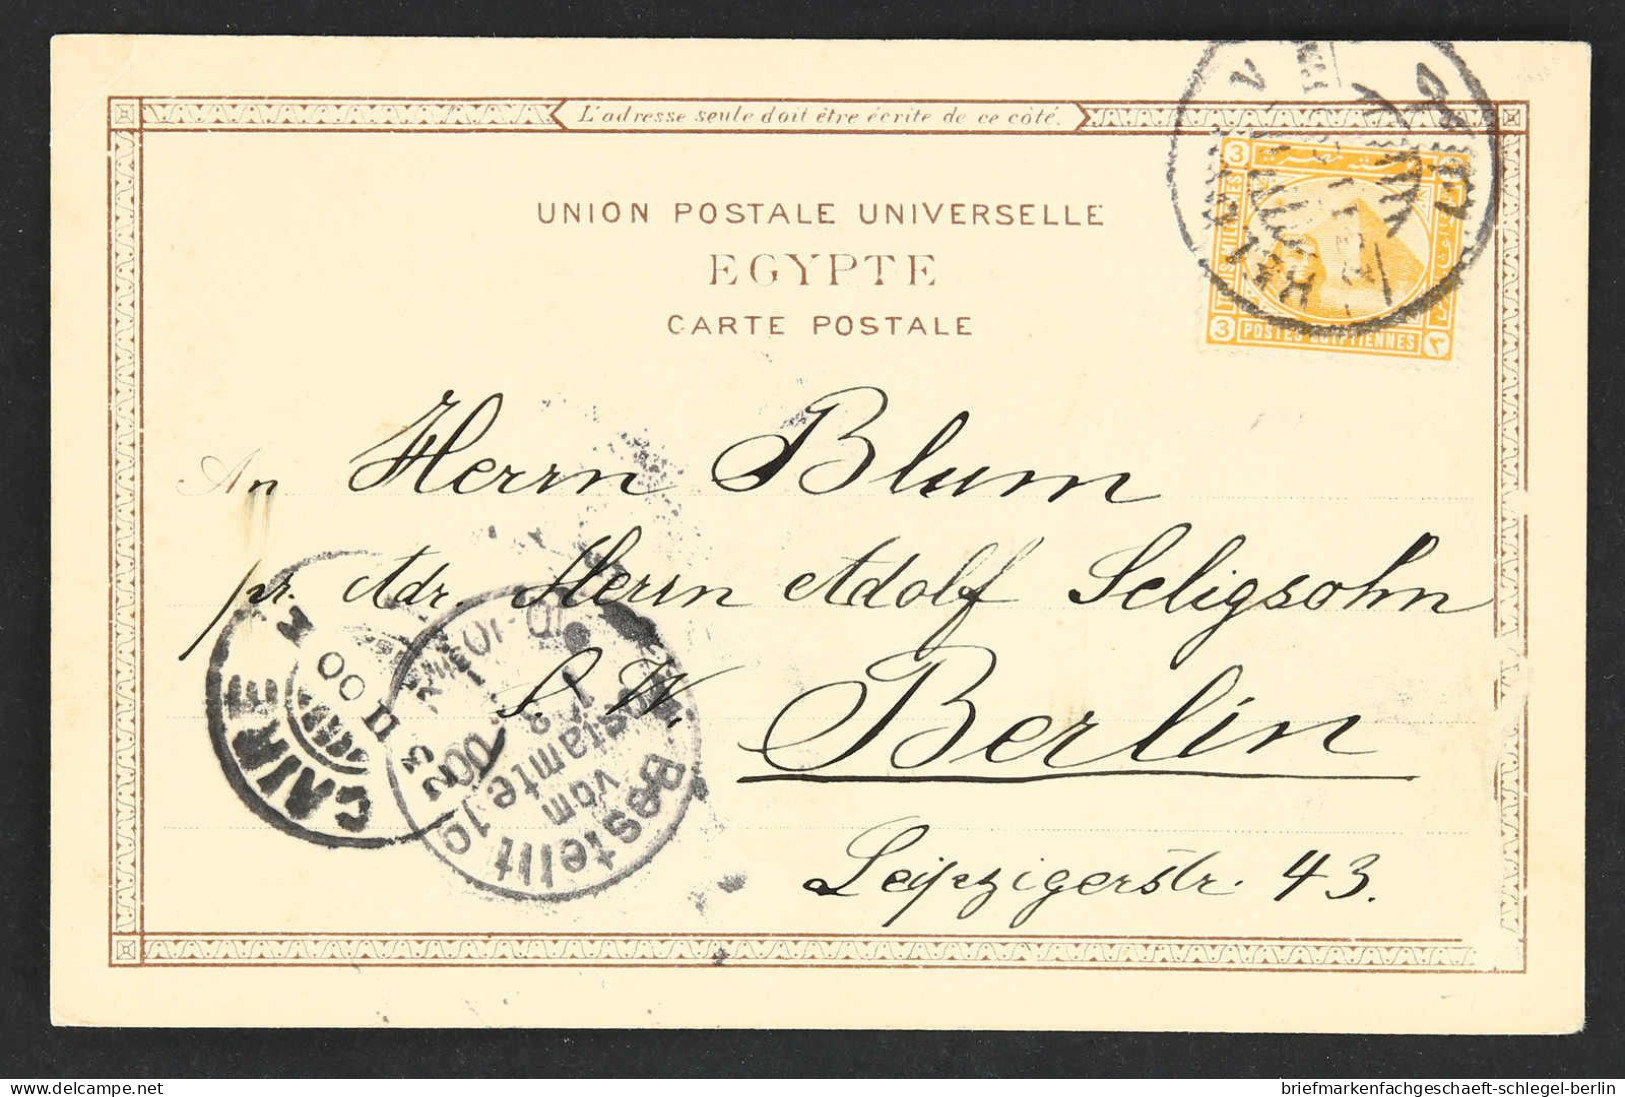 L'adresse seule doit être écrite de ce côté.
UNION POSTALE UNIVERSELLE
EGYPTE
CARTE POSTALE
3
3 POSTES EGYPTIENNES ٣
An Herrn Blum
pr. Adr. Herrn Adolf Seligsohn
S. W. Berlin
Leipzigerstr. 43.
CAIRE
3 II 00
Bestellt
vom
Postamte
briefmarkenfachgeschaeft-schlegel-berlin